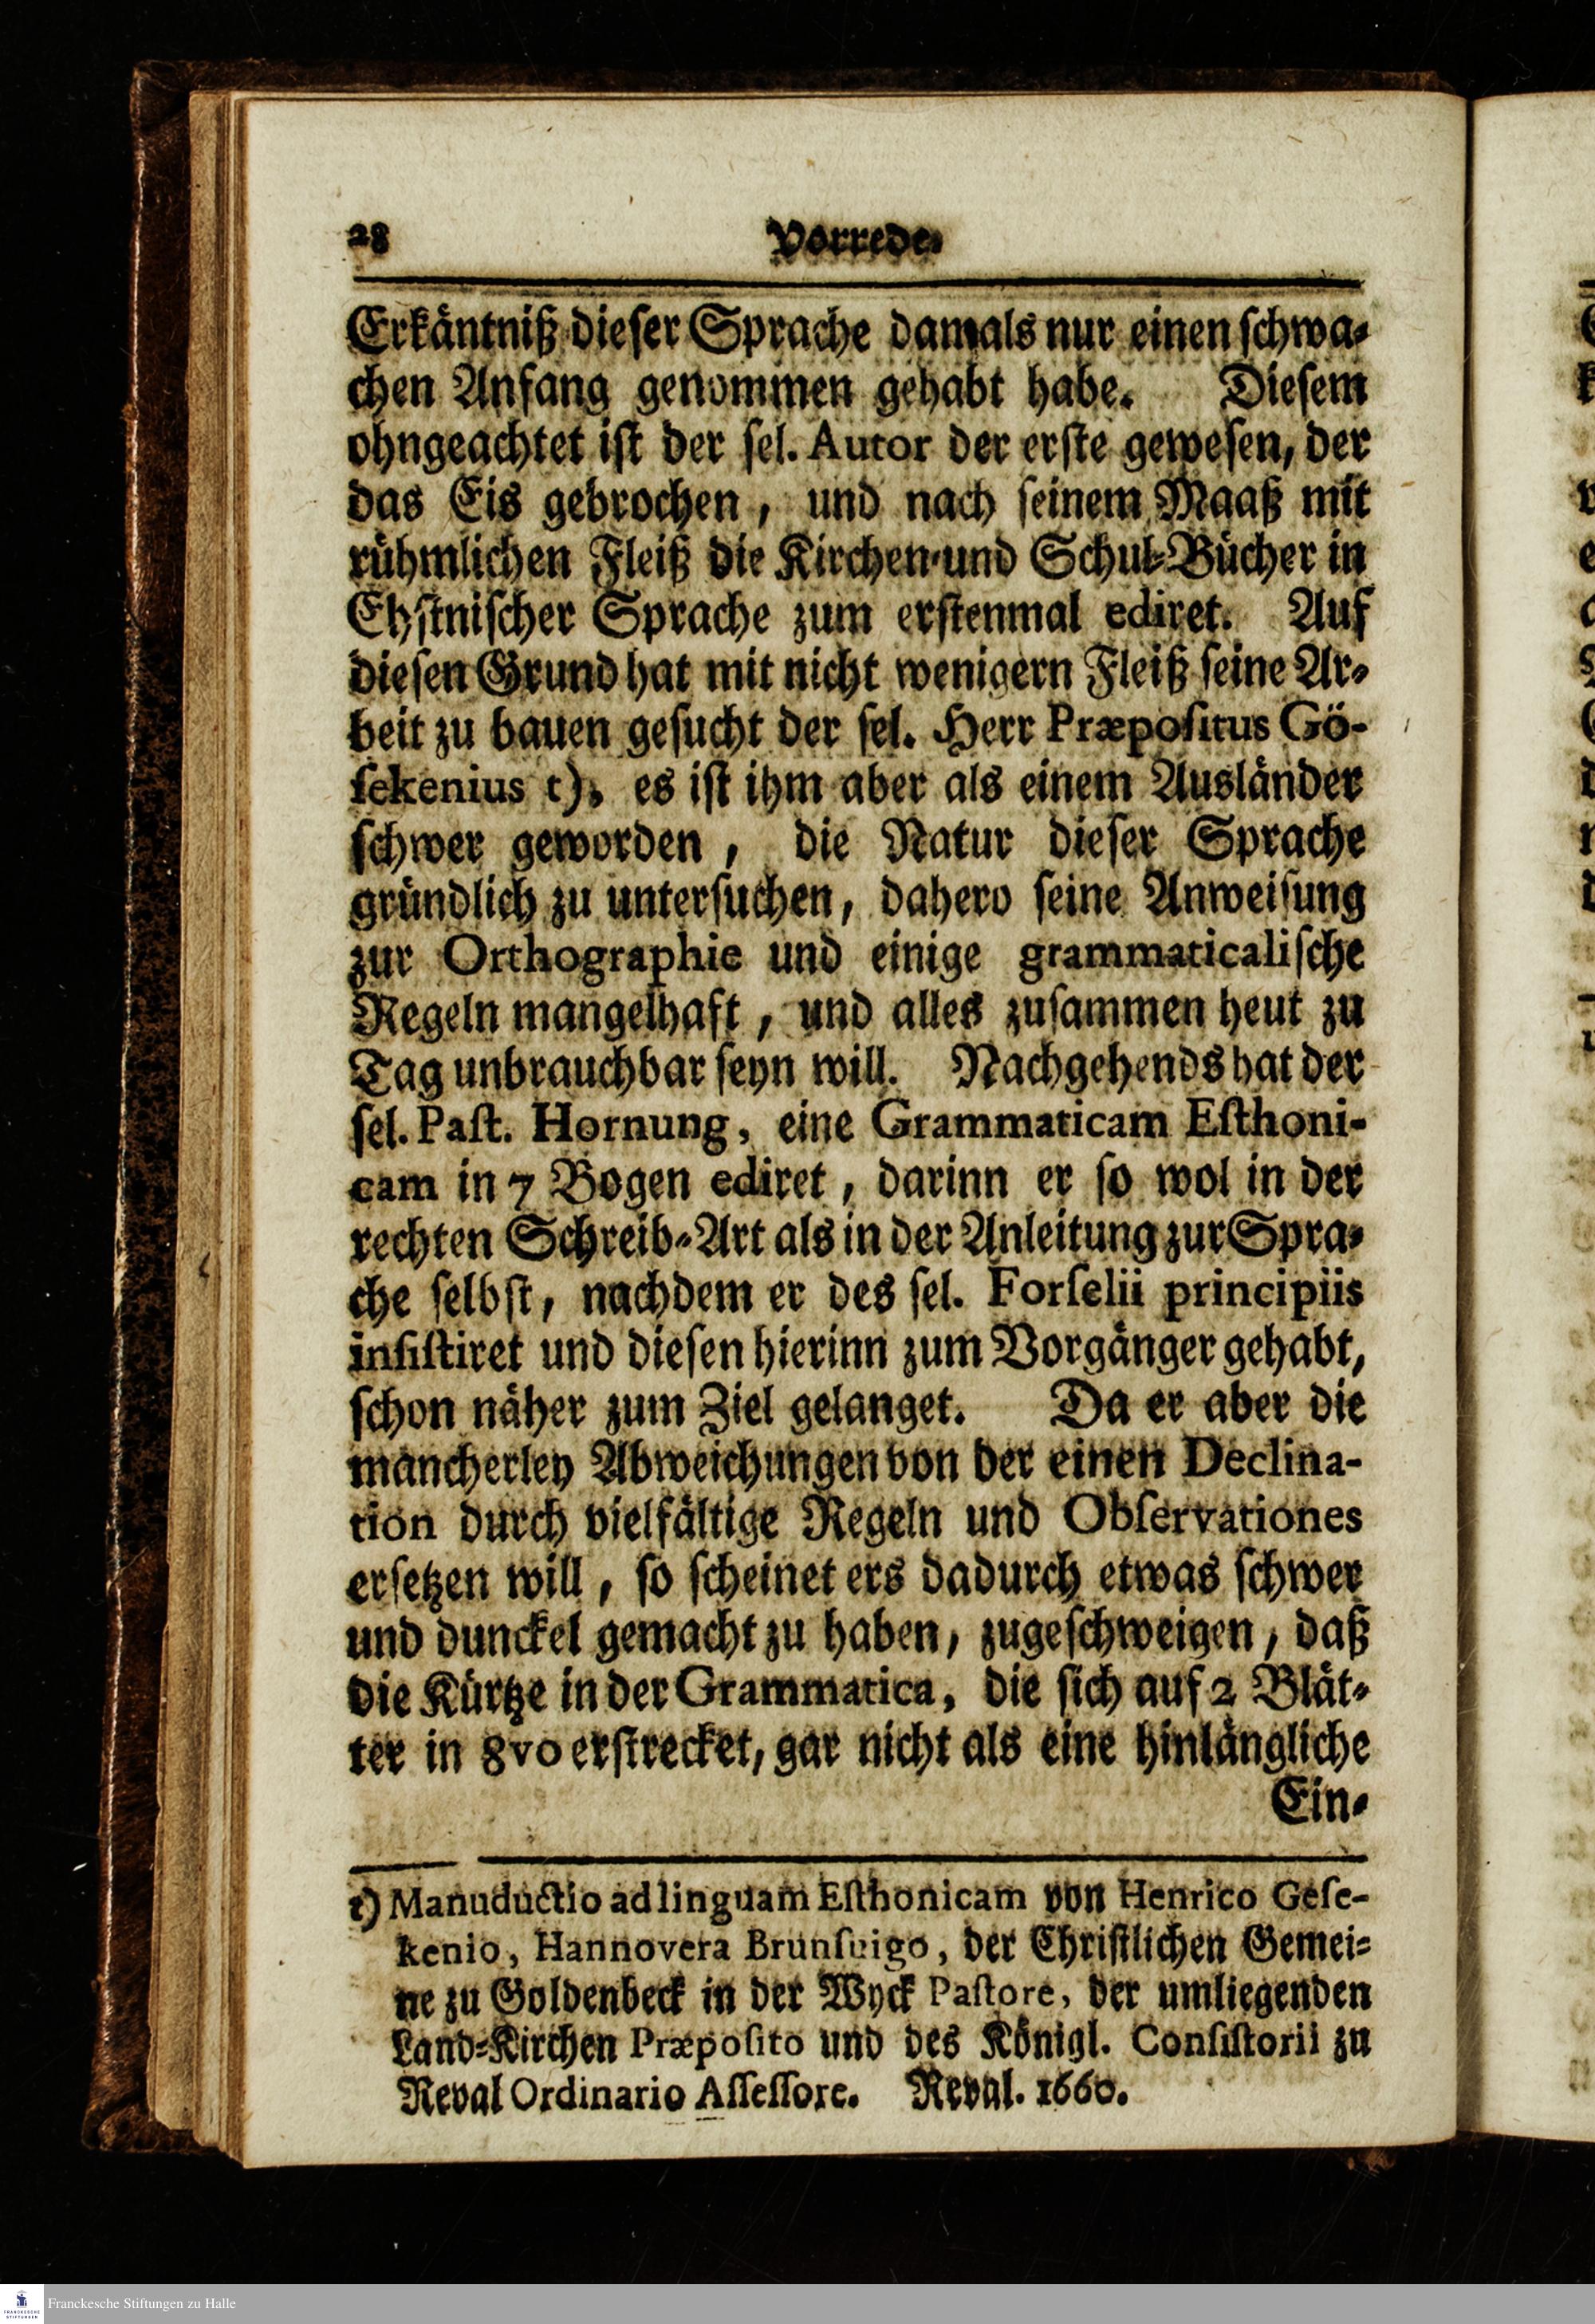 28 Vorrede.
Erkäntniß dieser Sprache damals nur einen schwa-
chen Anfang genommen gehabt habe. Diesem
ohngeachtet ist der sel. Autor der erste gewesen, der
das Eis gebrochen, und nach seinem Maaß mit
rühmlichen Fleiß die Kirchen-und Schul-Bücher in
Ehstnischer Sprache zum erstenmal ediret. Auf
diesen Grund hat mit nicht wenigern Fleiß seine Ar-
beit zu bauen gesucht der sel. Herr Præpositus Gö-
sekenius t), es ist ihm aber als einem Ausländer
schwer geworden, die Natur dieser Sprache
gründlich zu untersuchen, dahero seine Anweisung
zur Orthographie und einige grammaticalische
Regeln mangelhaft, und alles zusammen heut zu
Tag unbrauchbar seyn will. Nachgehends hat der
sel. Past. Hornung, eine Grammaticam Esthoni-
cam in 7 Bogen ediret, darinn er so wol in der
rechten Schreib-Art als in der Anleitung zur Spra-
che selbst, nachdem er des sel. Forselii principiis
insistiret und diesen hierinn zum Vorgänger gehabt,
schon näher zum Ziel gelanget. Da er aber die
mancherley Abweichungen von der einen Declina-
tion durch vielfältige Regeln und Observationes
ersetzen will, so scheinet ers dadurch etwas schwer
und dunckel gemacht zu haben, zugeschweigen, daß
die Kürtze in der Grammatica, die sich auf 2 Blät-
ter in 8vo erstrecket, gar nicht als eine hinlängliche
Ein-
t) Manuductio ad linguam Esthonicam von Henrico Gese-
kenio, Hannovera Brunsuigo, der Christlichen Gemei-
ne zu Goldenbeck in der Wyck Pastore, der umliegenden
Land-Kirchen Præposito und des Königl. Consistorii zu
Reval Ordinario Assessore. Reval. 1660.
Franckesche Stiftungen zu Halle